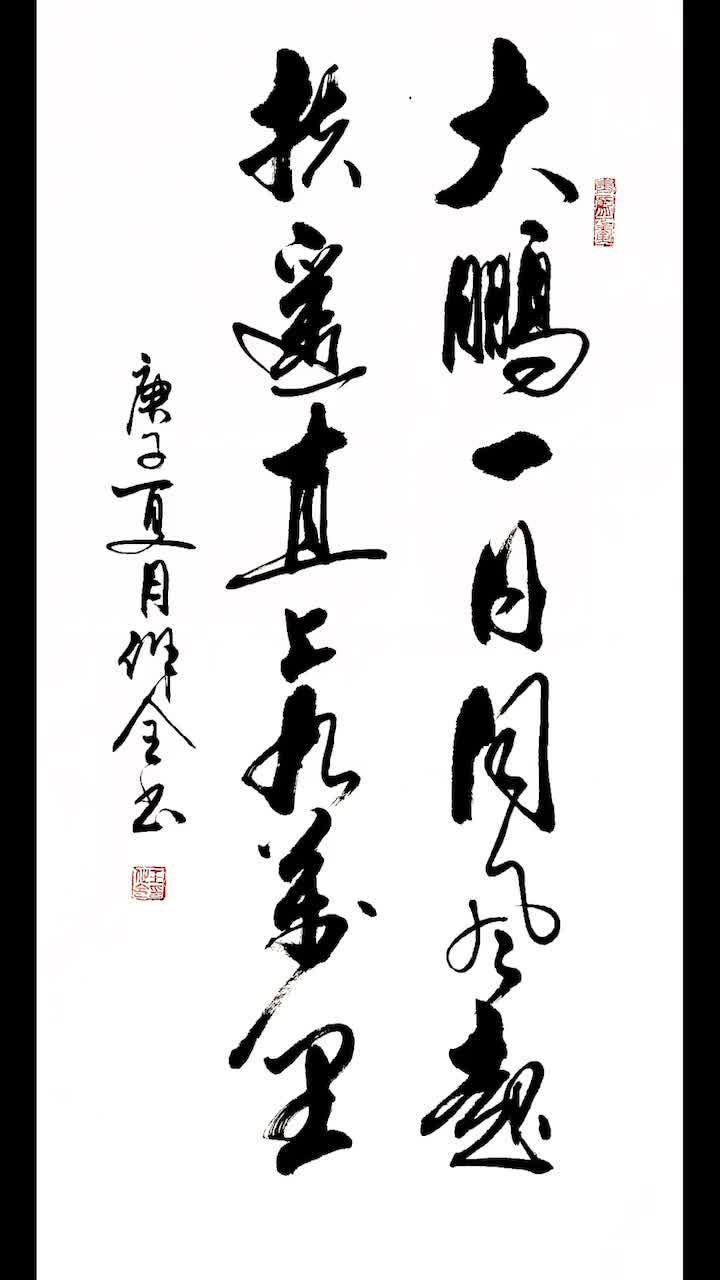 大鵬一日同风起
扶遙直上九萬里
庚子夏月全书